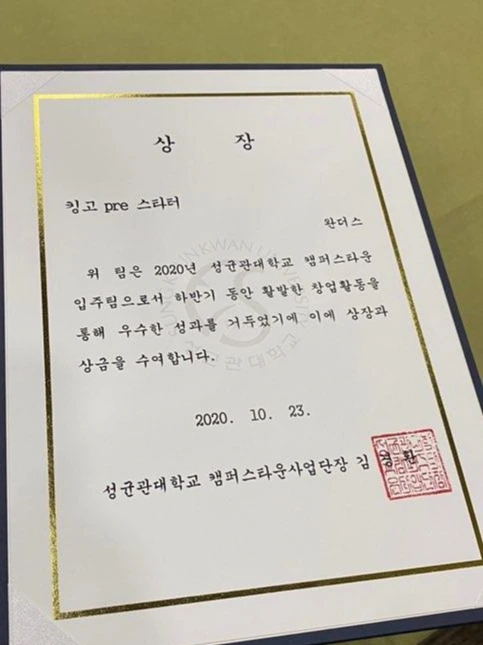 상 장
킹고 pre 스타터
완더스
위 팀은 2020년 성균관대학교 캠퍼스타운
입주팀으로서 하반기 동안 활발한 창업활동을
통해 우수한 성과를 거두었기에 이에 상장과
상금을 수여합니다.
SUNGKYUNKWAN UNIVERSITY
성균관대학교
2020. 10. 23.
성균관대학교 캠퍼스타운사업단장 김 경 환